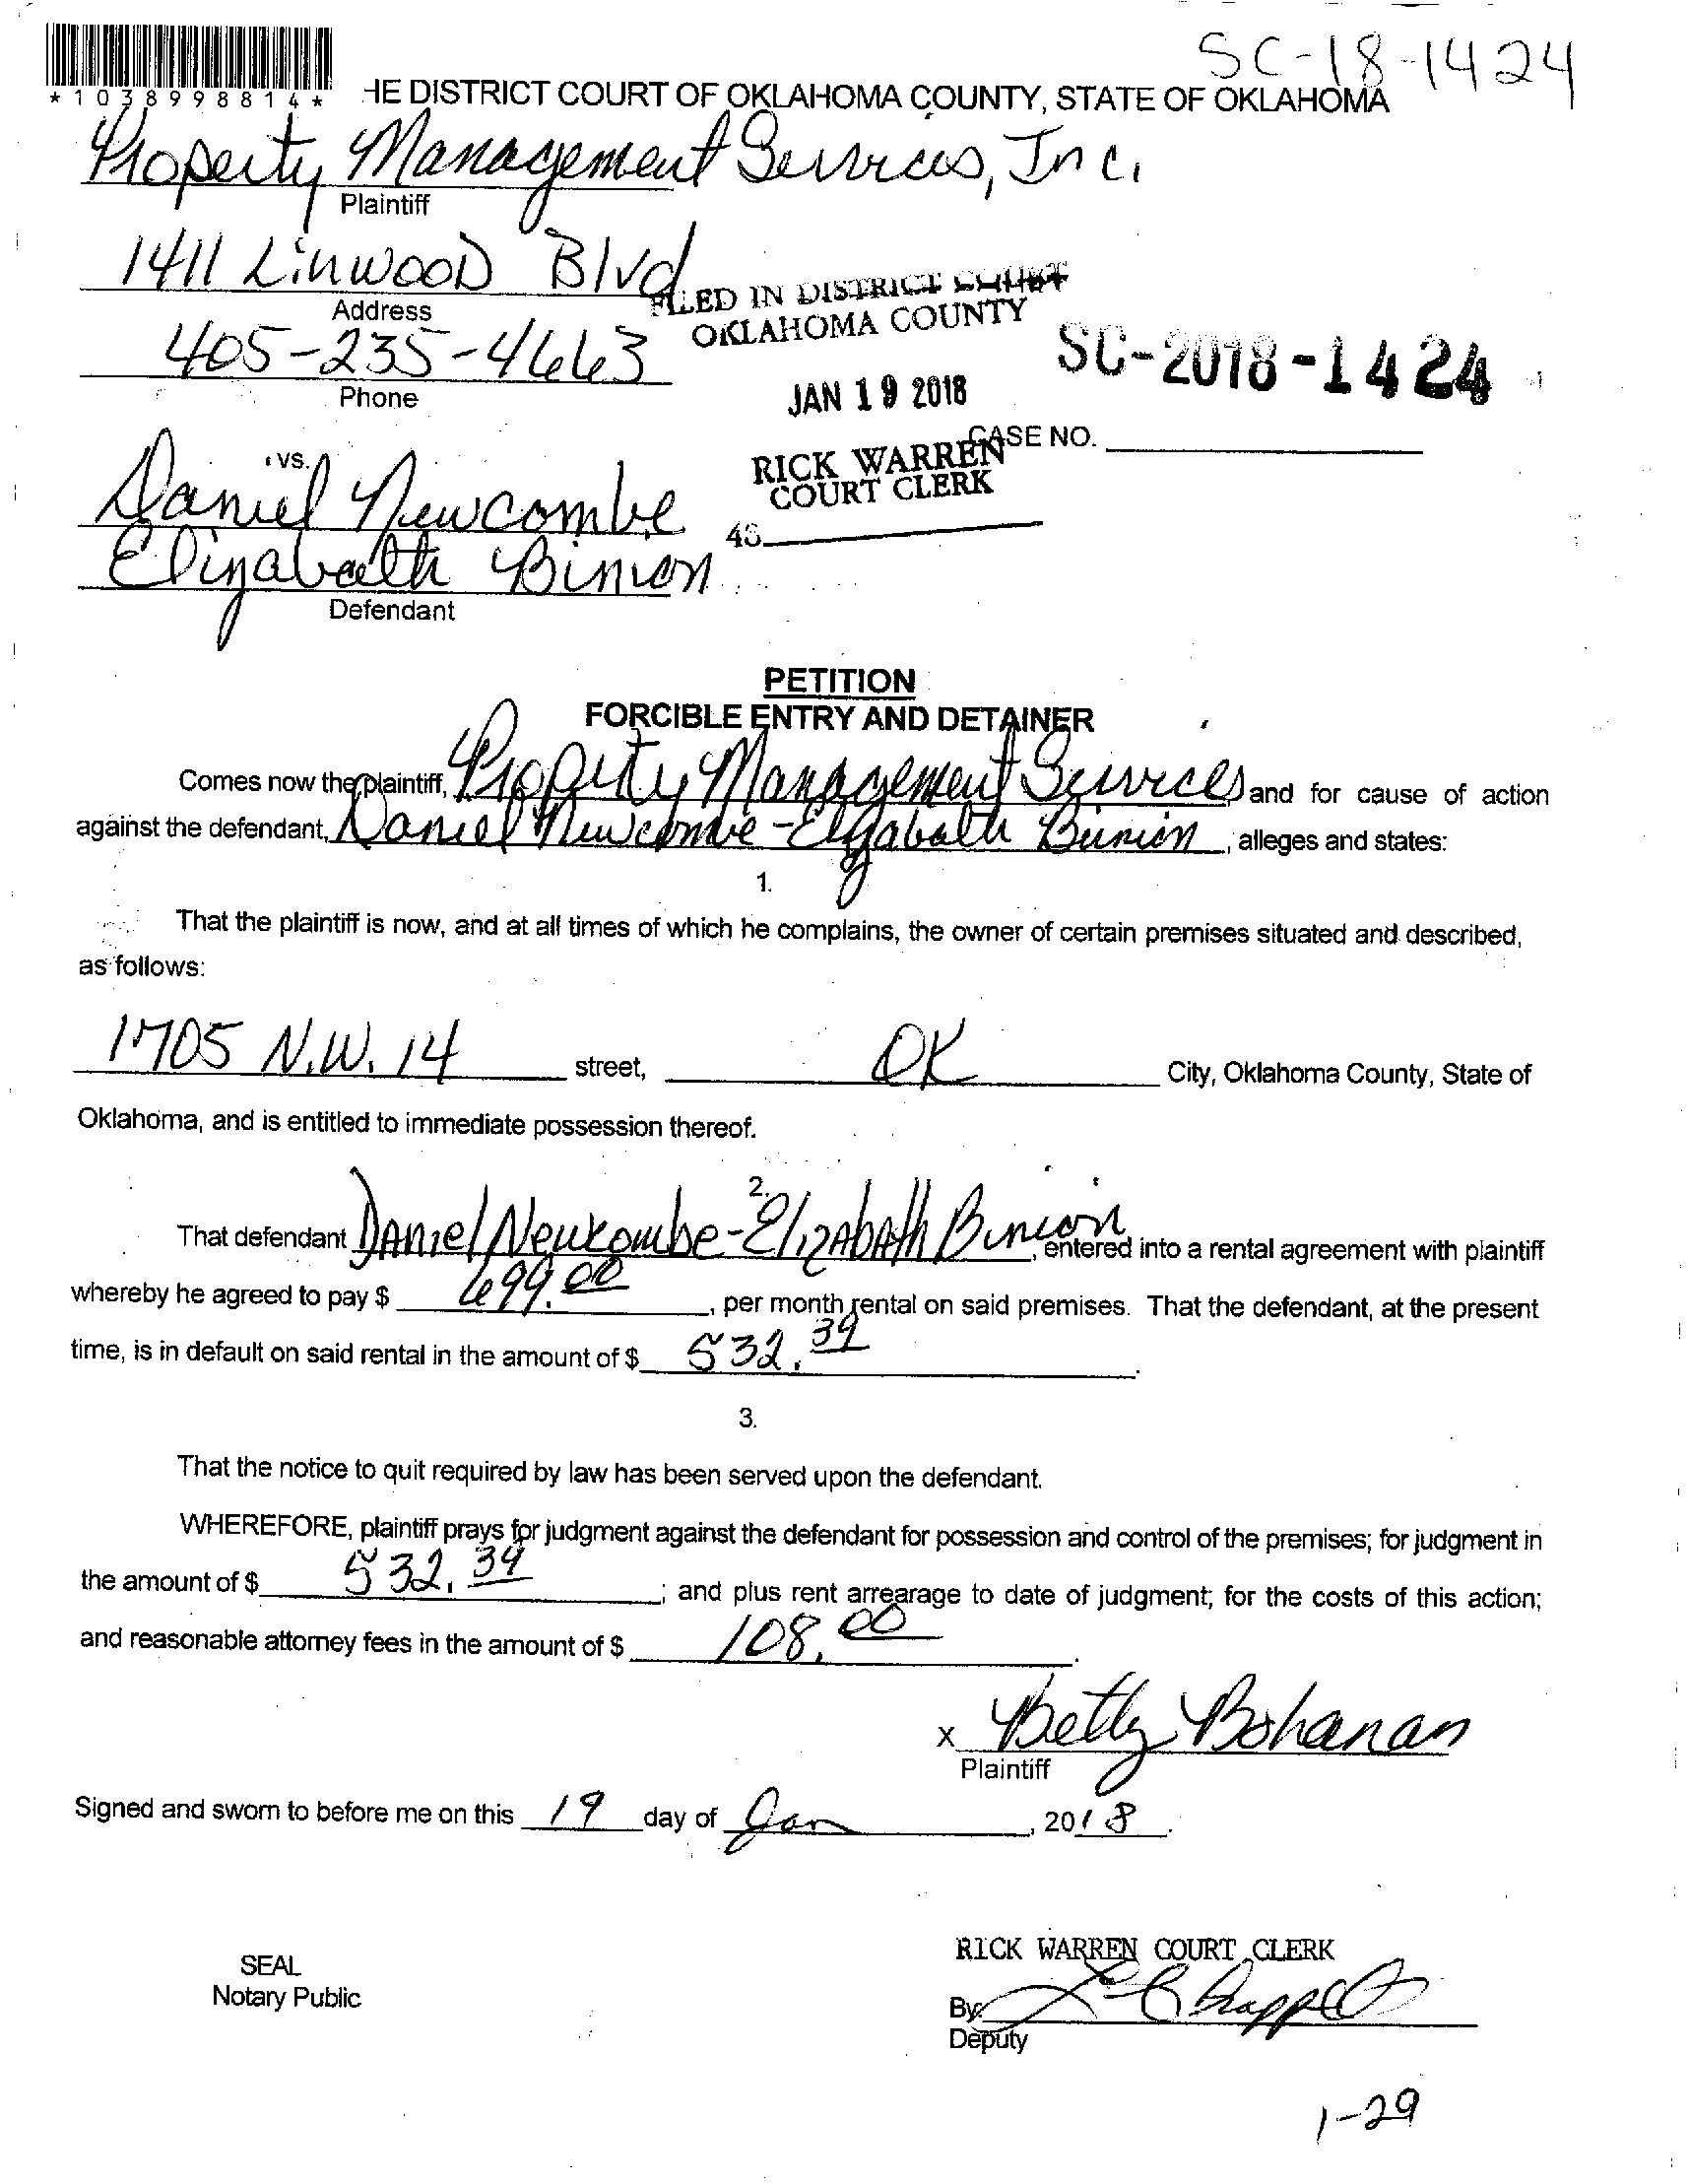 SC-18-1424
*1038998814*
HE DISTRICT COURT OF OKLAHOMA COUNTY, STATE OF OKLAHOMA
Property Management Services, Inc.
Plaintiff
1411 Linwood Blvd
Address
FILED IN DISTRICT COURT
OKLAHOMA COUNTY
405-235-4663
Phone
SC-2018-1424
JAN 19 2018
CASE NO.
RICK WARREN
COURT CLERK
vs.
Daniel Newcombe
Elizabeath Binion
Defendant
PETITION
FORCIBLE ENTRY AND DETAINER
Comes now the plaintiff, Property Management Services and for cause of action
against the defendant, Daniel Newcombe - Elizabath Binion, alleges and states:
1.
That the plaintiff is now, and at all times of which he complains, the owner of certain premises situated and described,
as follows:
1705 N.W. 14 street, OK City, Oklahoma County, State of
Oklahoma, and is entitled to immediate possession thereof.
2.
That defendant Daniel Newcombe - Elizabath Binion, entered into a rental agreement with plaintiff
whereby he agreed to pay $ 699.00, per month rental on said premises. That the defendant, at the present
time, is in default on said rental in the amount of $ 532.39.
3.
That the notice to quit required by law has been served upon the defendant.
WHEREFORE, plaintiff prays for judgment against the defendant for possession and control of the premises; for judgment in
the amount of $ 532.39; and plus rent arrearage to date of judgment; for the costs of this action;
and reasonable attorney fees in the amount of $ 108.00.
x Betty Bohanan
Plaintiff
Signed and sworn to before me on this 19 day of Jan, 2018.
SEAL
Notary Public
RICK WARREN COURT CLERK
By
Deputy
1-29